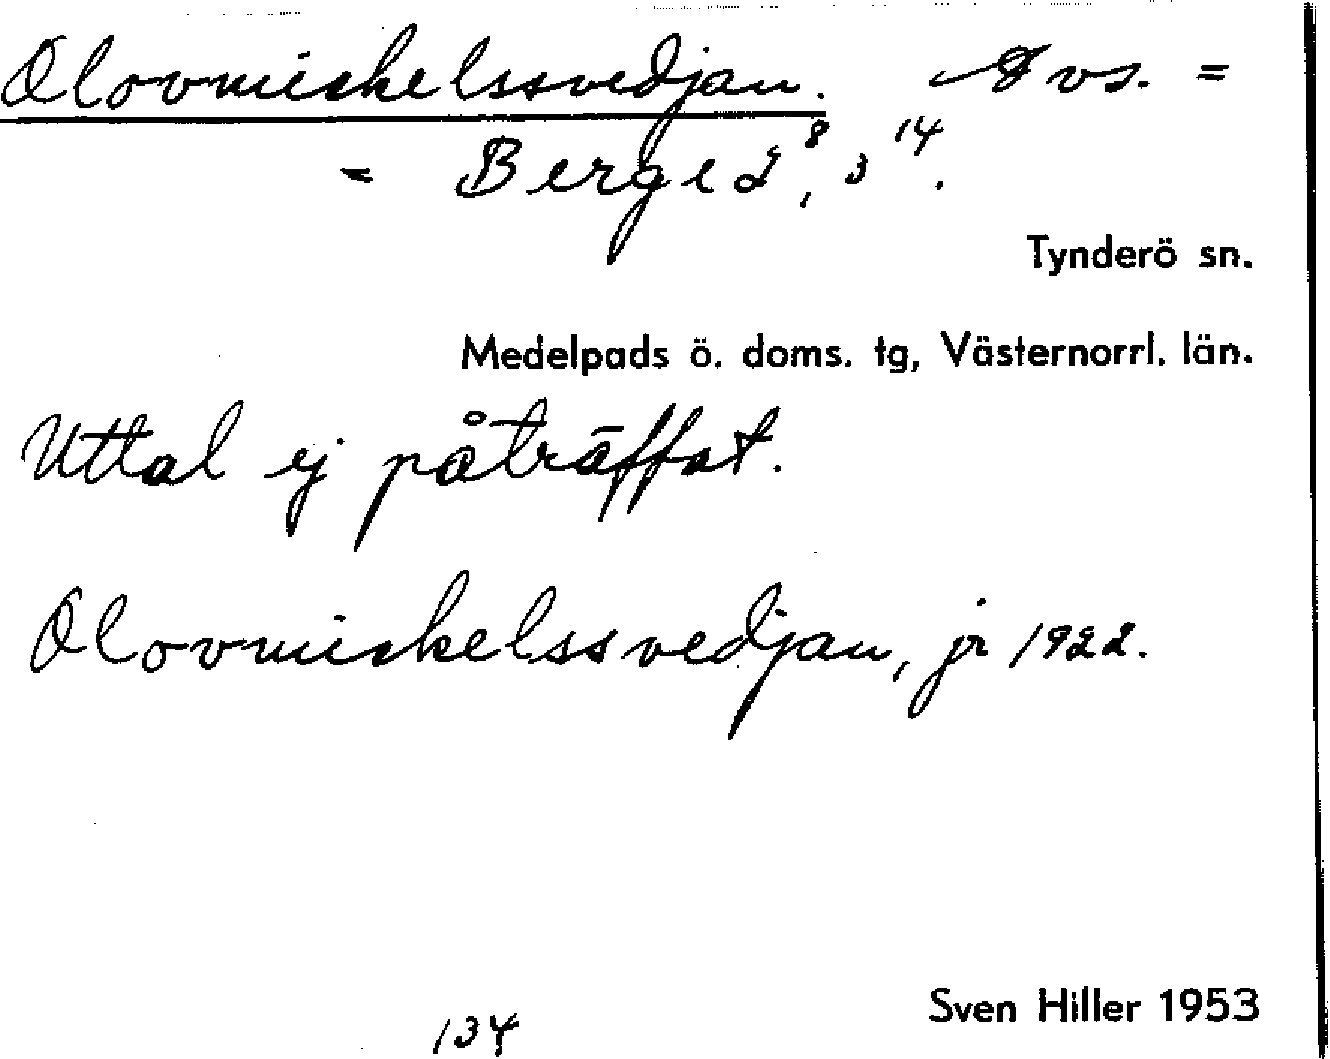 Olovmickelssvedjan. Avs. =
= Berge 2⁸, 3¹⁴.
Tynderö sn.
Medelpads ö. doms. tg, Västernorrl. län.
Uttal ej påträffat.
Olovmickelssvedjan, jr 1922.
Sven Hiller 1953
134